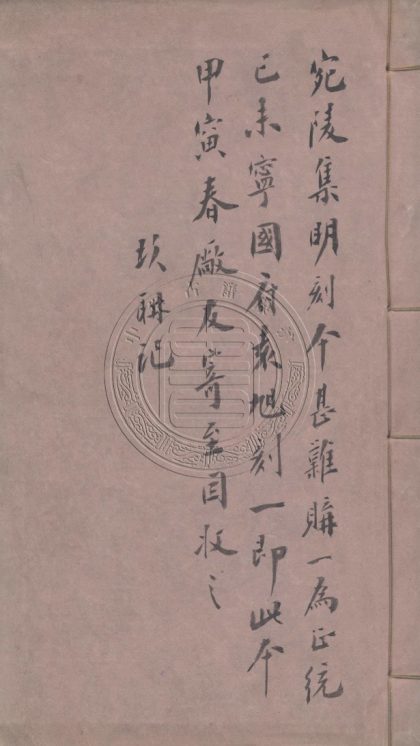 宛陵集明刻本甚難購一為正統
己未寧國府袁旭刻一即此本
甲寅春廠友寄至因收之
玖聃記